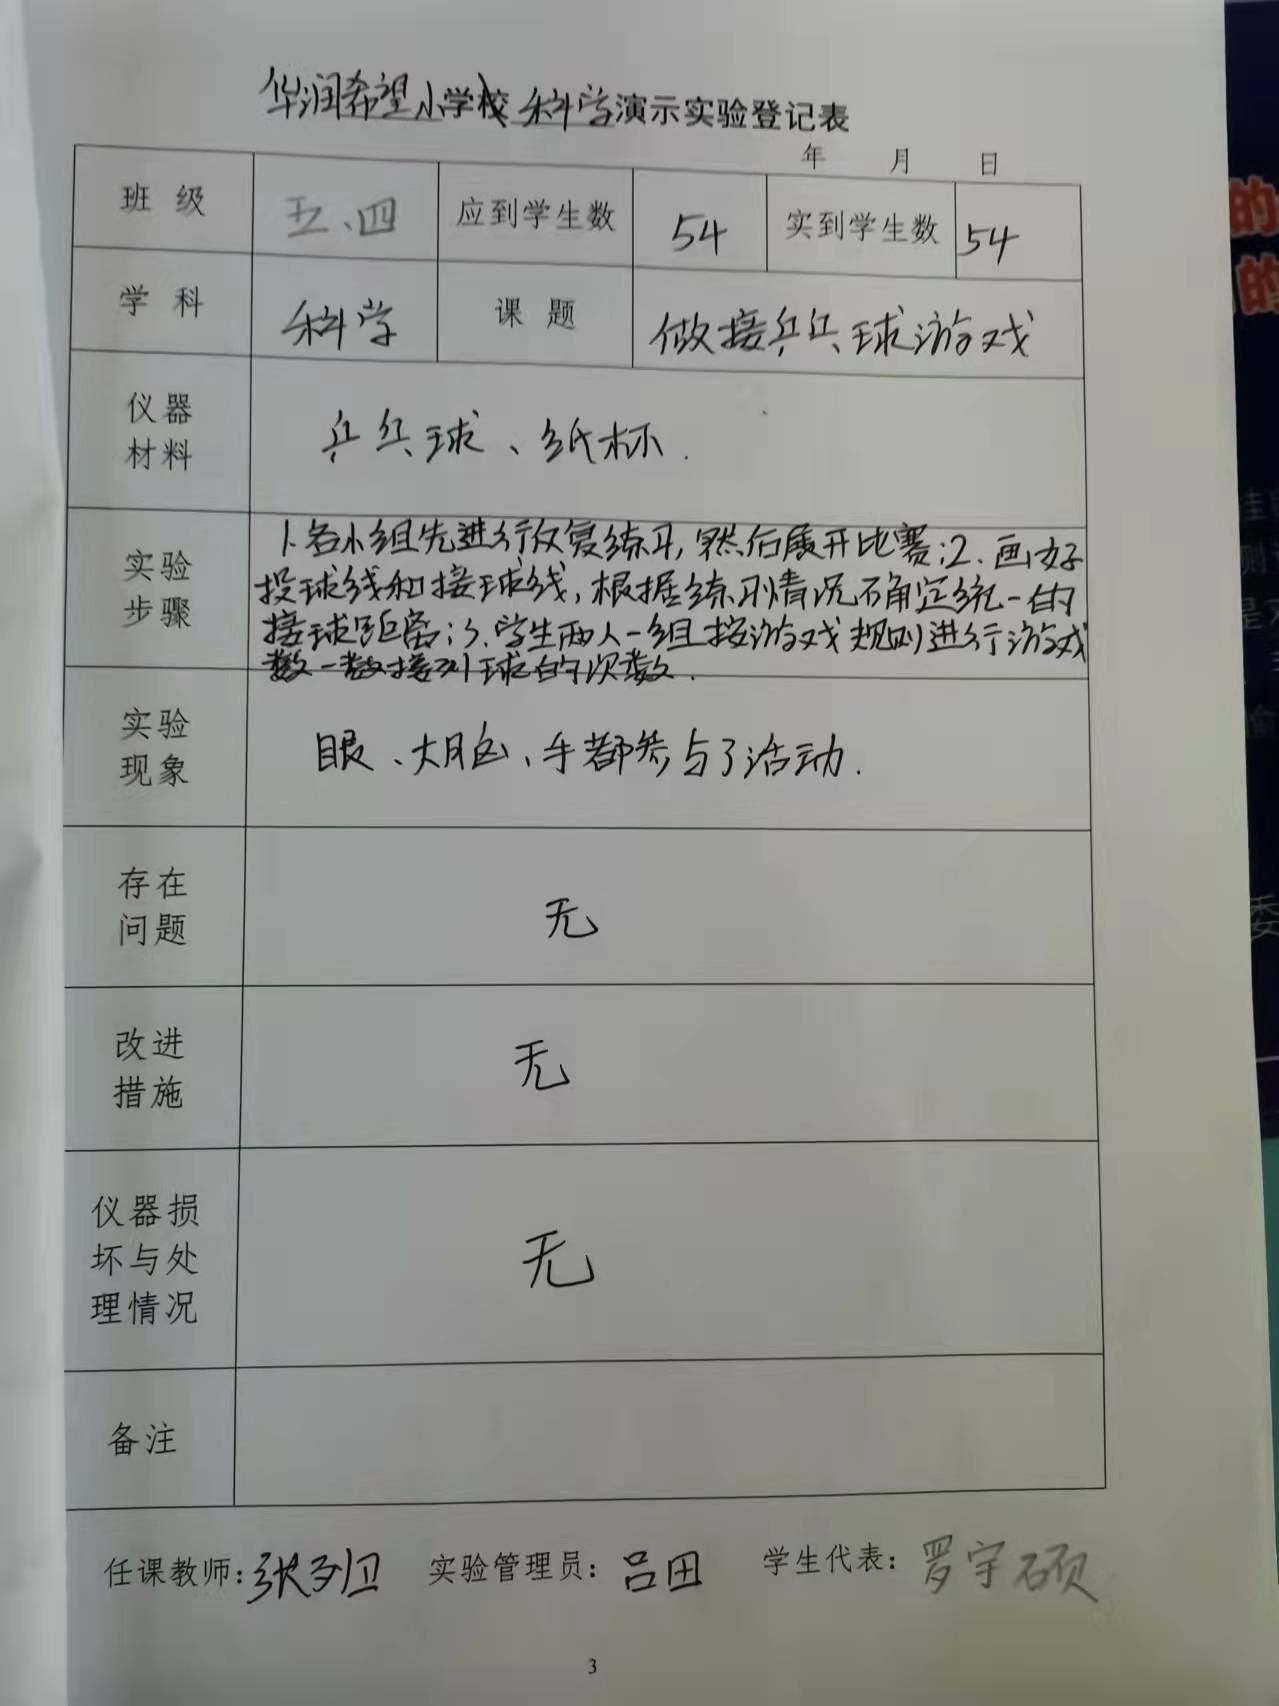 华润希望小学校科学演示实验登记表
年 月 日
班级 五、四 应到学生数 54 实到学生数 54
学科 科学 课题 做接乒乓球游戏
仪器材料 乒乓球、纸杯.
实验步骤 1.各小组先进行反复练习,然后展开比赛;2.画好
投球线和接球线,根据练习情况确定统一的
接球距离;3.学生两人一组按游戏规则进行游戏
数一数接到球的次数.
实验现象 眼、大脑、手都参与了活动.
存在问题 无
改进措施 无
仪器损坏与处理情况 无
备注
任课教师: 实验管理员:吕田 学生代表:罗宇硕
3